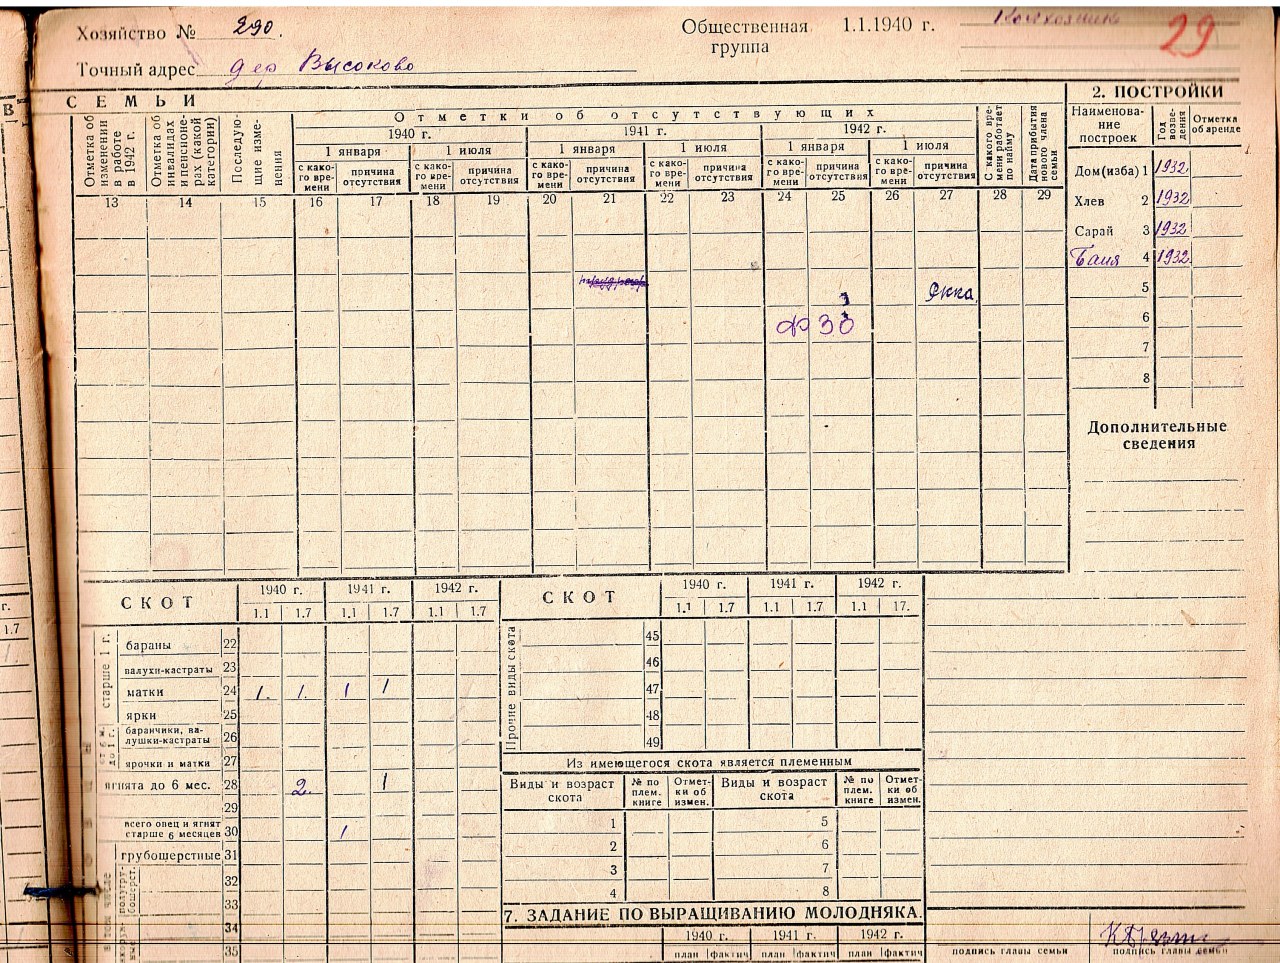 Хозяйство № 290.
Общественная группа 1.1.1940 г. Колхозник
29
Точный адрес дер Высоково
В
СЕМЬИ
Отметка об изменении в работе в 1942 г.
Отметка об инвалидах и пенсионерах (какой категории)
Последующие изменения
Отметки об отсутствующих
1940 г. 1941 г. 1942 г.
1 января 1 июля 1 января 1 июля 1 января 1 июля
с како-го вре-мени причина отсутствия с како-го вре-мени причина отсутствия с како-го вре-мени причина отсутствия с како-го вре-мени причина отсутствия с како-го вре-мени причина отсутствия с како-го вре-мени причина отсутствия
С какого вре-мени работает по найму
Дата прибытия нового члена семьи
13 14 15 16 17 18 19 20 21 22 23 24 25 26 27 28 29
РККА
ФЗО
2. ПОСТРОЙКИ
Наименова-ние построек
Год возве-дения
Отметка об аренде
Дом(изба) 1 1932.
Хлев 2 1932
Сарай 3 1932
Баня 4 1932.
5
6
7
8
Дополнительные сведения
г.
1.7
СКОТ
1940 г. 1941 г. 1942 г.
1.1 1.7 1.1 1.7 1.1 1.7
старше 1 г.
бараны 22
валухи-кастраты 23
матки 24 1. 1. 1 1
ярки 25
от 6 м. до 1 г.
баранчики, ва-лушки-кастраты 26
ярочки и матки 27
ягнята до 6 мес. 28 2. 1
29
всего овец и ягнят старше 6 месяцев 30 1
в том числе
грубошерстные 31
полугру-бошерст.
32
33
34
35
СКОТ
1940 г. 1941 г. 1942 г.
1.1 1.7 1.1 1.7 1.1 17.
Прочие виды скота
45
46
47
48
49
Из имеющегося скота является племенным
Виды и возраст скота № по плем. книге Отмет-ки об измен. Виды и возраст скота № по плем. книге Отмет-ки об измен.
1 5
2 6
3 7
4 8
7. ЗАДАНИЕ ПО ВЫРАЩИВАНИЮ МОЛОДНЯКА.
1940 г. 1941 г. 1942 г.
план фактич план фактич план фактич
подпись главы семьи
подпись главы семьи